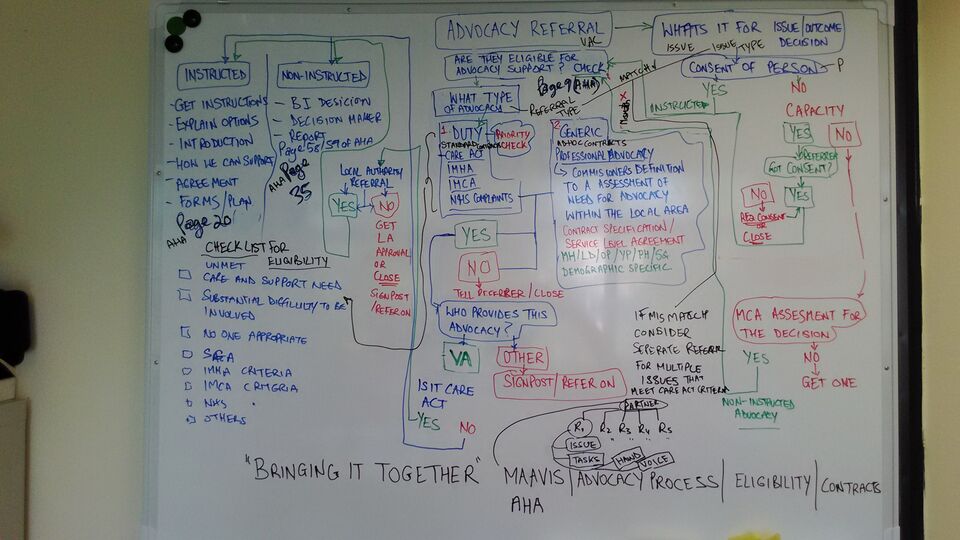 ADVOCACY REFERRAL
VAC
WHATS IT FOR ISSUE/OUTCOME
ISSUE ISSUE TYPE DECISION
ARE THEY ELIGIBLE FOR
ADVOCACY SUPPORT? CHECK
Page 9 (AHA)
MATCH
CONSENT OF PERSON P
INSTRUCTED
NON-INSTRUCTED
WHAT TYPE
OF ADVOCACY
REFERRAL TYPE
INSTRUCTED
YES
NO
CAPACITY
YES
NO
REFERRER
GOT CONSENT?
NO
YES
REQ CONSENT
OR
CLOSE
- GET INSTRUCTIONS
- EXPLAIN OPTIONS
- INTRODUCTION
- HOW WE CAN SUPPORT
- AGREEMENT
- FORMS/PLAN
Page 20
AHA
- BI DESICION
- DECISION MAKER
- REPORT
Page 58/59 of AHA
AHA Page
35
LOCAL AUTHORITY
REFERRAL
YES
NO
GET
LA
APPROVAL
OR
CLOSE
SIGNPOST
/REFER ON
1 DUTY
STANDARD CONTRACTS
CARE ACT
IMHA
IMCA
NHS COMPLAINTS
PRIORITY
CHECK
2 GENERIC
ADHOC CONTRACTS
PROFESSIONAL ADVOCACY
COMMISIONERS DEFINITION
TO A ASSESSMENT OF
NEED FOR ADVOCACY
WITHIN THE LOCAL AREA
CONTRACT SPECIFICATION/
SERVICE LEVEL AGREEMENT
MH/LD/OP/YP/PH/SG
DEMOGRAPHIC SPECIFIC
YES
NO
TELL REFERRER/CLOSE
WHO PROVIDES THIS
ADVOCACY?
VA
OTHER
SIGNPOST/REFER ON
IS IT CARE
ACT
YES
NO
CHECKLIST FOR
ELIGIBILITY
UNMET
CARE AND SUPPORT NEED
SUBSTANTIAL DIFFICULTY TO BE
INVOLVED
NO ONE APPROPRIATE
IMHA CRITERIA
IMCA CRITERIA
NHS
OTHERS
IF MISMATCH
CONSIDER
SEPERATE REFERRAL
FOR MULTIPLE
ISSUES THAT
MEET CARE ACT CRITERIA
MCA ASSESMENT FOR
THE DECISION
YES
NO
NON-INSTRUCTED
ADVOCACY
GET ONE
PARTNER
R1 R2 R3 R4 R5
ISSUE
TASKS
HAND
VOICE
"BRINGING IT TOGETHER" MAAVIS | ADVOCACY PROCESS | ELIGIBILITY | CONTRACTS
AHA